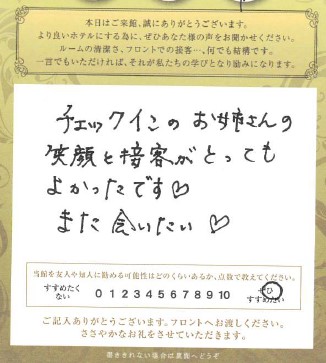 本日はご来館、誠にありがとうございます。
より良いホテルにする為に、ぜひあなた様の声をお聞かせください。
ルームの清潔さ、フロントでの接客…、何でも結構です。
一言でもいただければ、それが私たちの学びとなり励みになります。
チェックインのお姉さんの
笑顔と接客がとっても
よかったです♡
また会いたい♡
当館を友人や知人に勧める可能性はどのくらいあるか、点数で教えてください。
すすめたくない 0 1 2 3 4 5 6 7 8 9 10 ぜひすすめたい
ご記入ありがとうございます。フロントへお渡しください。
ささやかなお礼をさせていただきます。
書ききれない場合は裏面へどうぞ